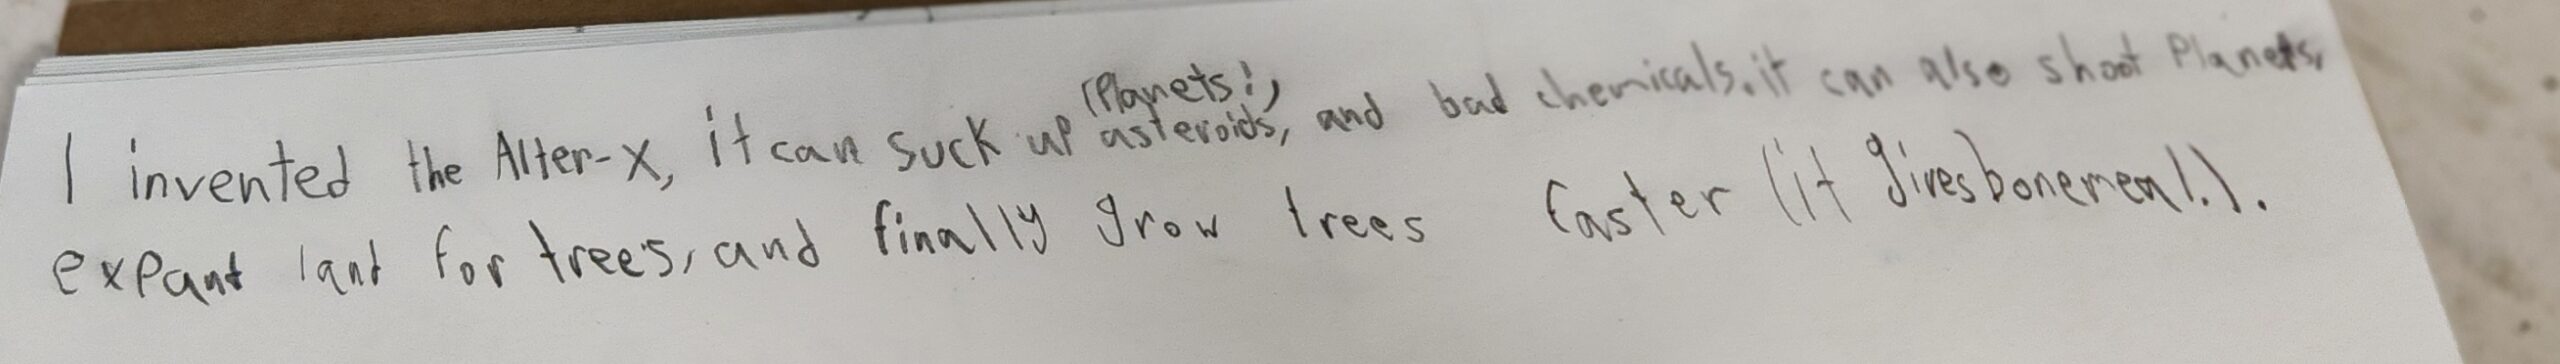 (Planets!)
I invented the Alter-X, it can suck up asteroids, and bad chemicals. it can also shoot Planets,
expant lant for trees, and finally grow trees faster (it givesbonemeal.).